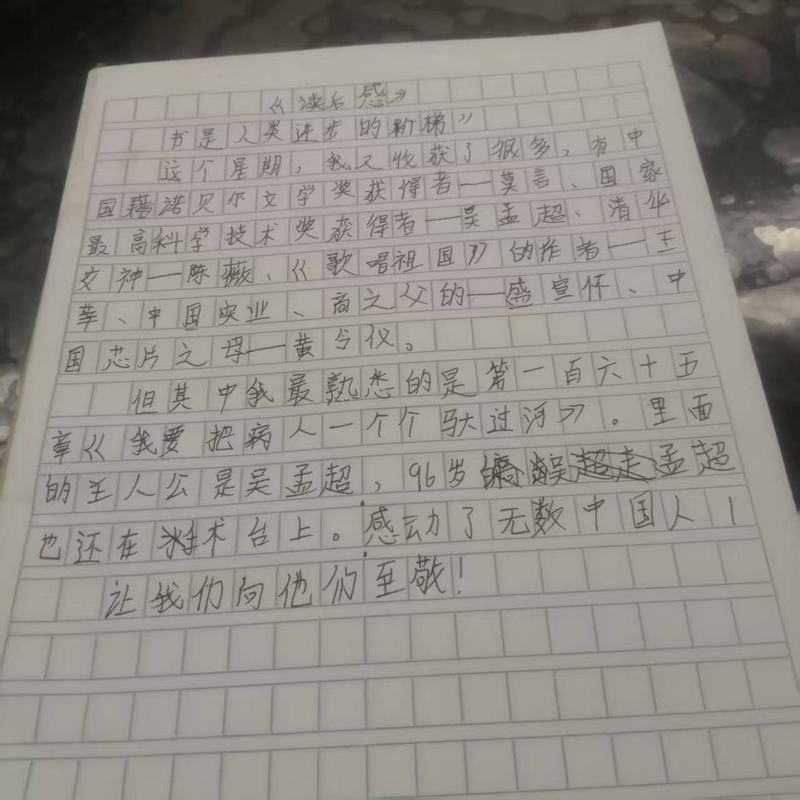 《读后感》
书是人类进步的阶梯》
这个星期，我又收获了很多，有中
国籍诺贝尔文学奖获得者——莫言、国家
最高科学技术奖获得者——吴孟超、清华
女神——陈薇、《歌唱祖国》的作者——王
莘、中国实业、商之父的——盛宣怀、中
国芯片之母——黄令仪。
但其中我最熟悉的是第一百六十五
章《我要把病人一个个驮过河》。里面
的主人公是吴孟超，96岁的吴孟超
也还在手术台上。感动了无数中国人！
让我们向他们至敬！